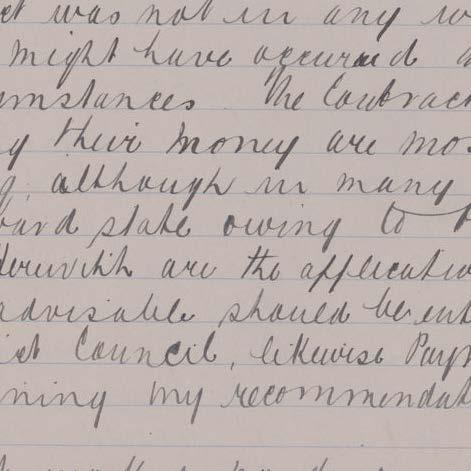 ct was not in any w
might have occurred a
umstances. The Contract
y their money are mos
g, although in many
ward state owing to
Herewith are the applicatio
advisable should be ent
ict Council, likewise Paym
ning my recommendat